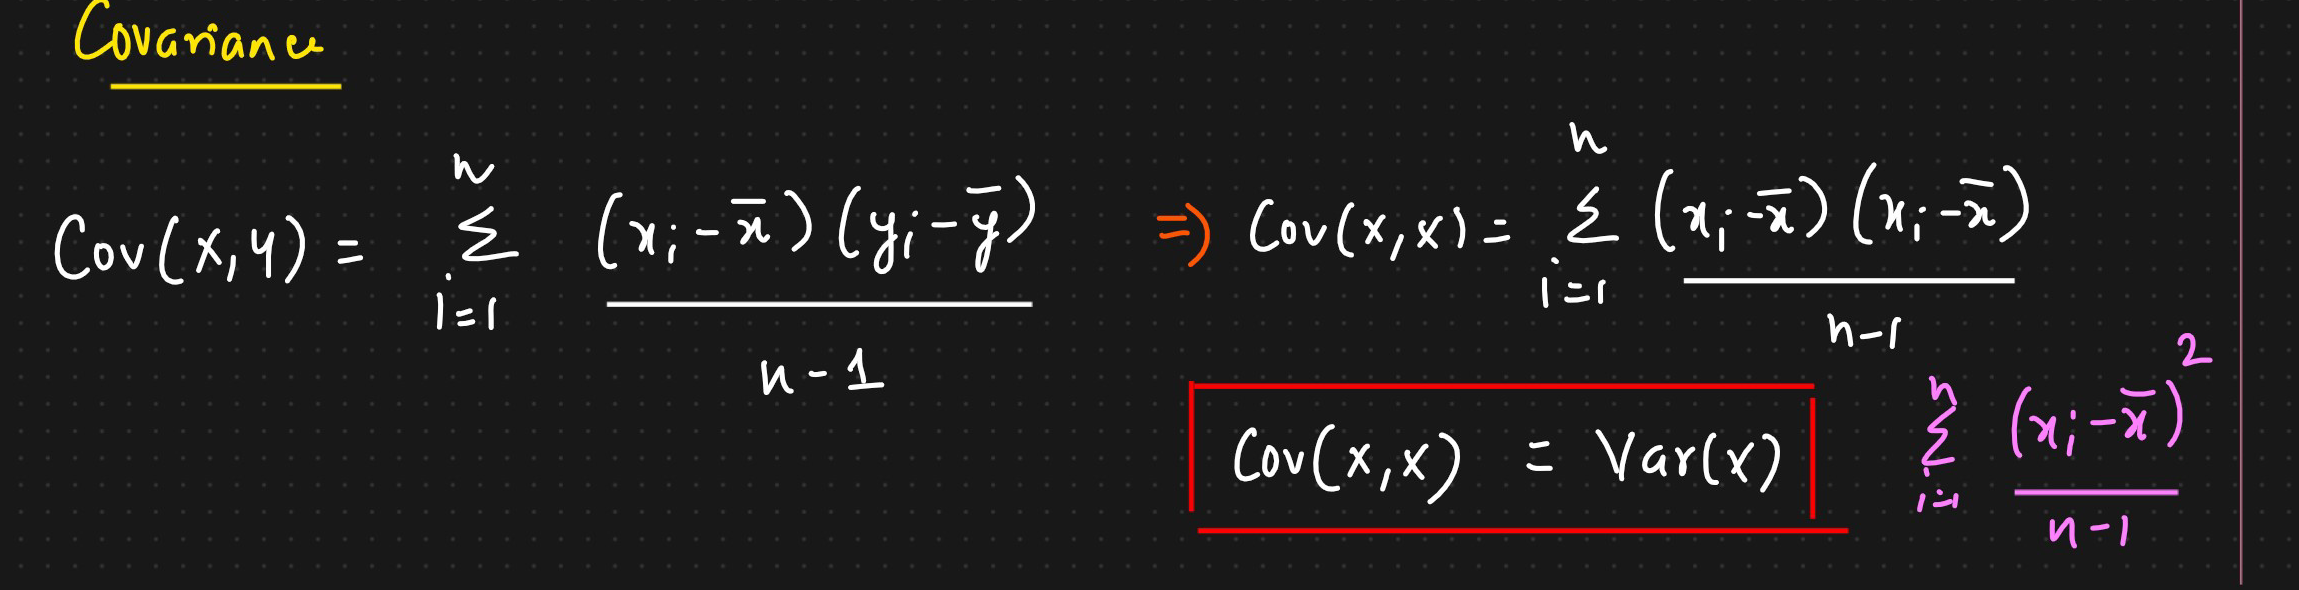 Covariance
Cov(x,y) = n Σ i=1 (xᵢ - x̄) (yᵢ - ȳ) / n - 1
⇒ Cov(x,x) = n Σ i=1 (xᵢ - x̄) (xᵢ - x̄) / n - 1
Cov(x,x) = Var(x)
n Σ i=1 (xᵢ - x̄)² / n - 1